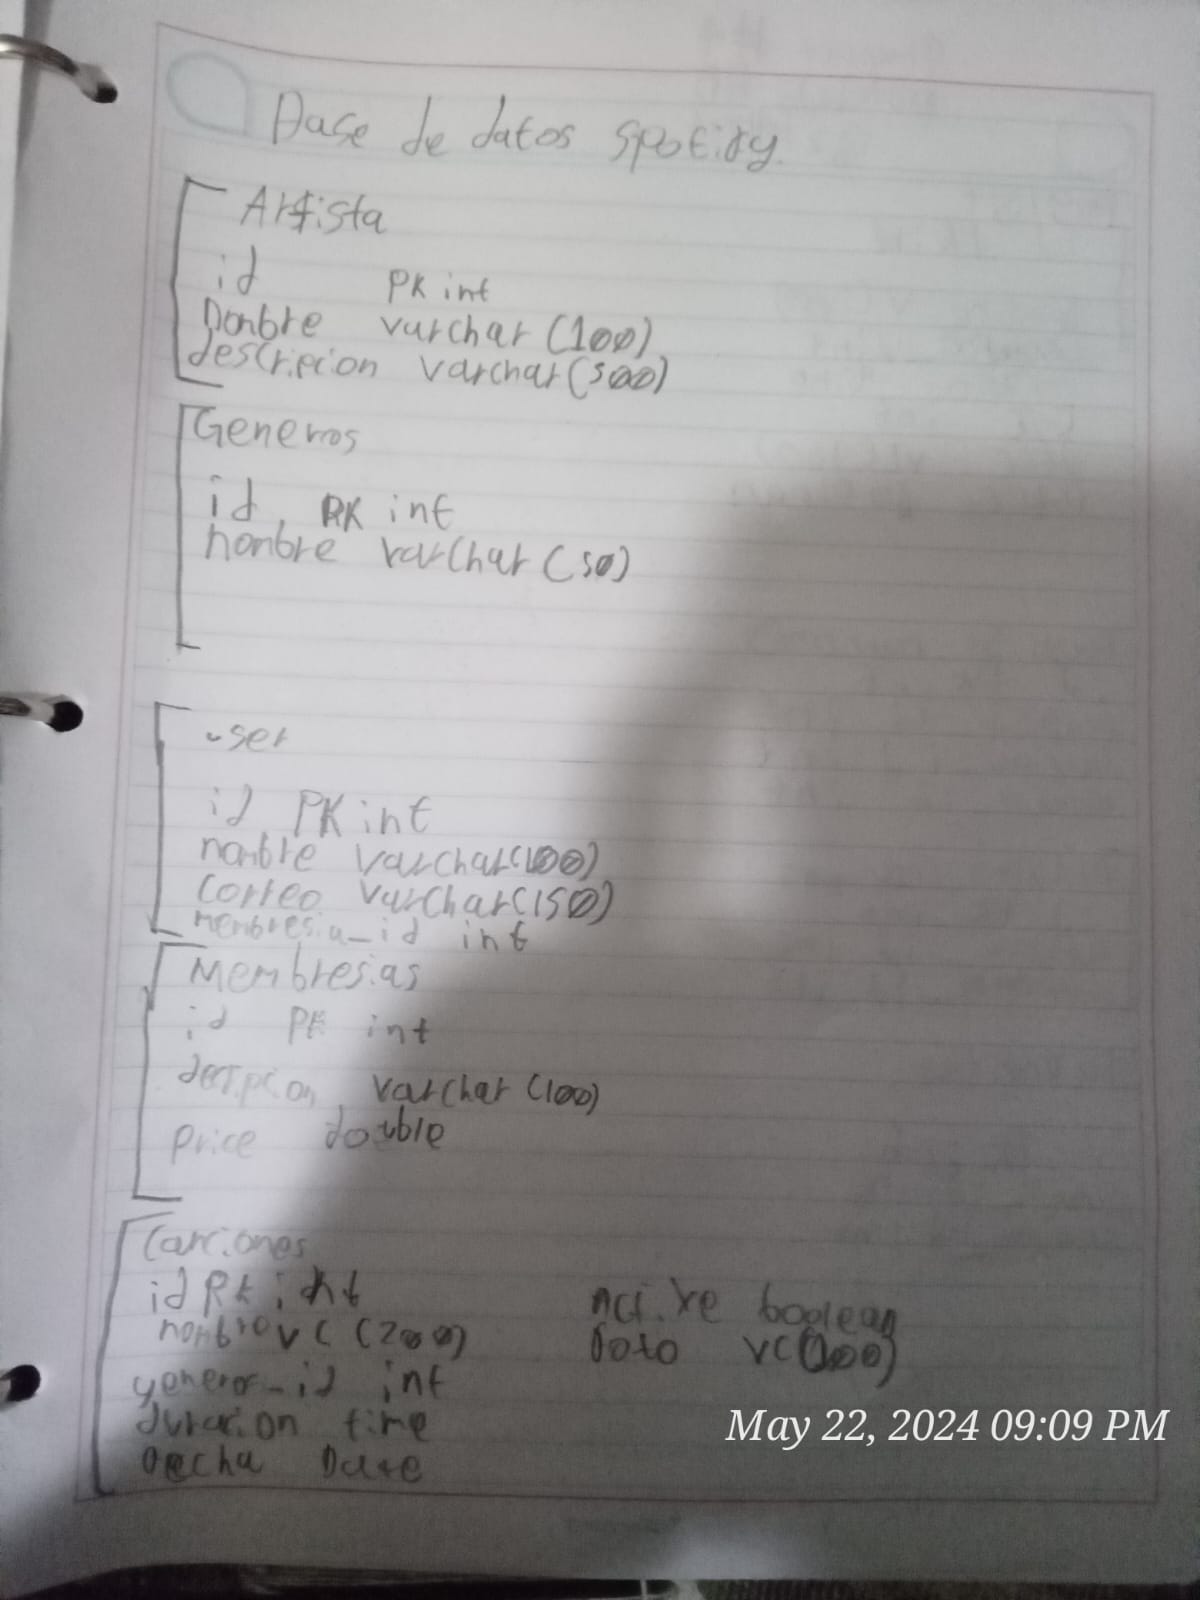 Base de datos spotify
Artista
id PK int
nombre varchar (100)
descripcion varchar (500)
Generos
id PK int
nombre varchar (50)
user
id PK int
nombre varchar(100)
correo varchar(150)
membresia_id int
Membresias
id PK int
descripcion varchar (100)
price double
Canciones
id PK int
nombre VC (200)
genero_id int
duracion time
fecha Date
active boolean
foto VC(100)
May 22, 2024 09:09 PM